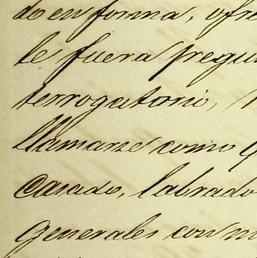 do en forma, ofre
le fuera pregu
terrogatorio,
llamarse como q
Casado, labrado
generales con m